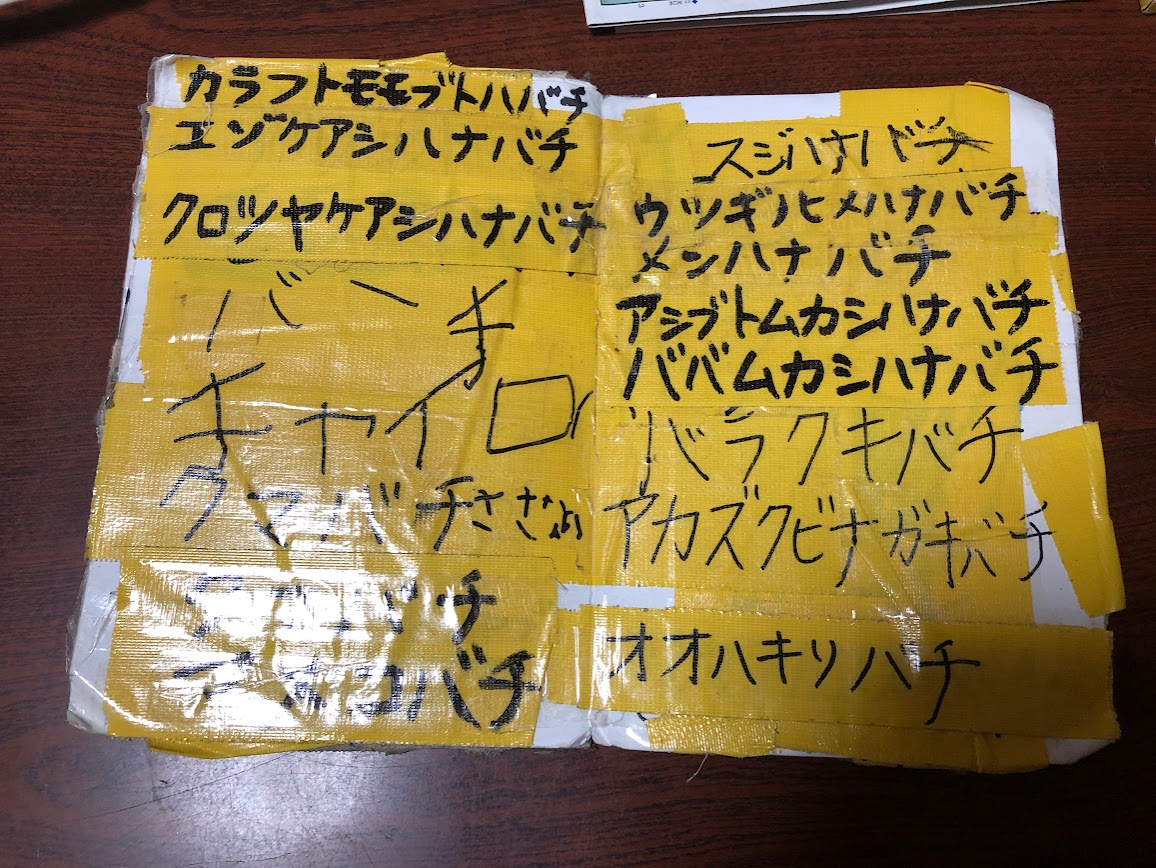 カラフトモモブトハバチ
エゾケアシハナバチ
クロツヤケアシハナバチ
バーチ
チャイロ
クマバチささなみ
バチ
コバチ
スジハナバチ
ウツギノヒメハナバチ
メンハナバチ
アシブトムカシハナバチ
ババムカシハナバチ
バラクキバチ
アカズクビナガキバチ
オオハキリバチ